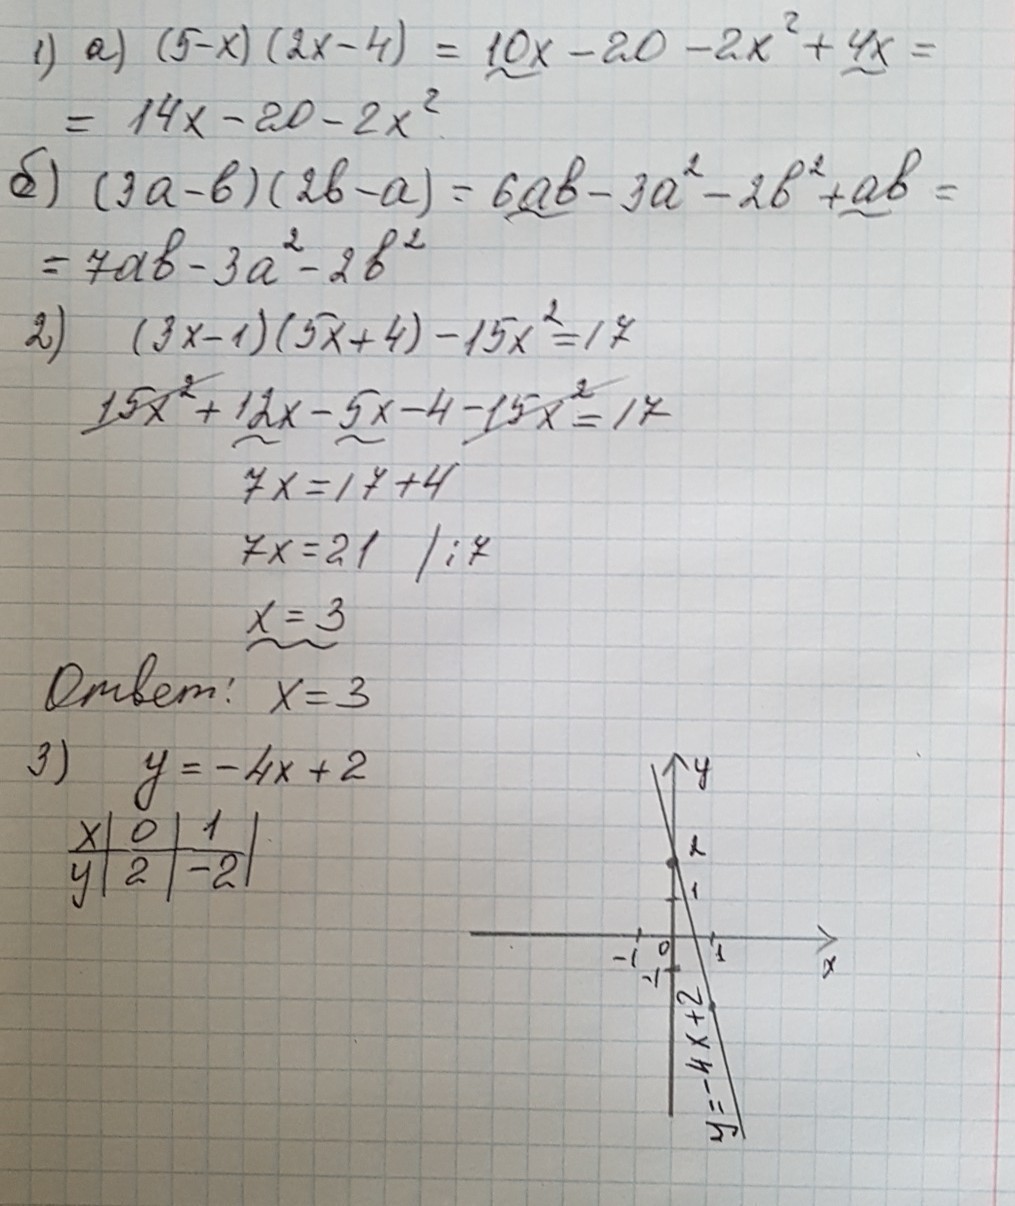 1) а) (5-x)(2x-4) = 10x - 20 - 2x² + 4x =
= 14x - 20 - 2x²
б) (3a-b)(2b-a) = 6ab - 3a² - 2b² + ab =
= 7ab - 3a² - 2b²
2) (3x-1)(5x+4) - 15x² = 17
15x² + 12x - 5x - 4 - 15x² = 17
7x = 17 + 4
7x = 21 /:7
x = 3
Ответ: x = 3
3) y = -4x + 2
x | 0 | 1 |
y | 2 | -2 |
y
2
1
-1 0 1
x
-1
y = -4x + 2